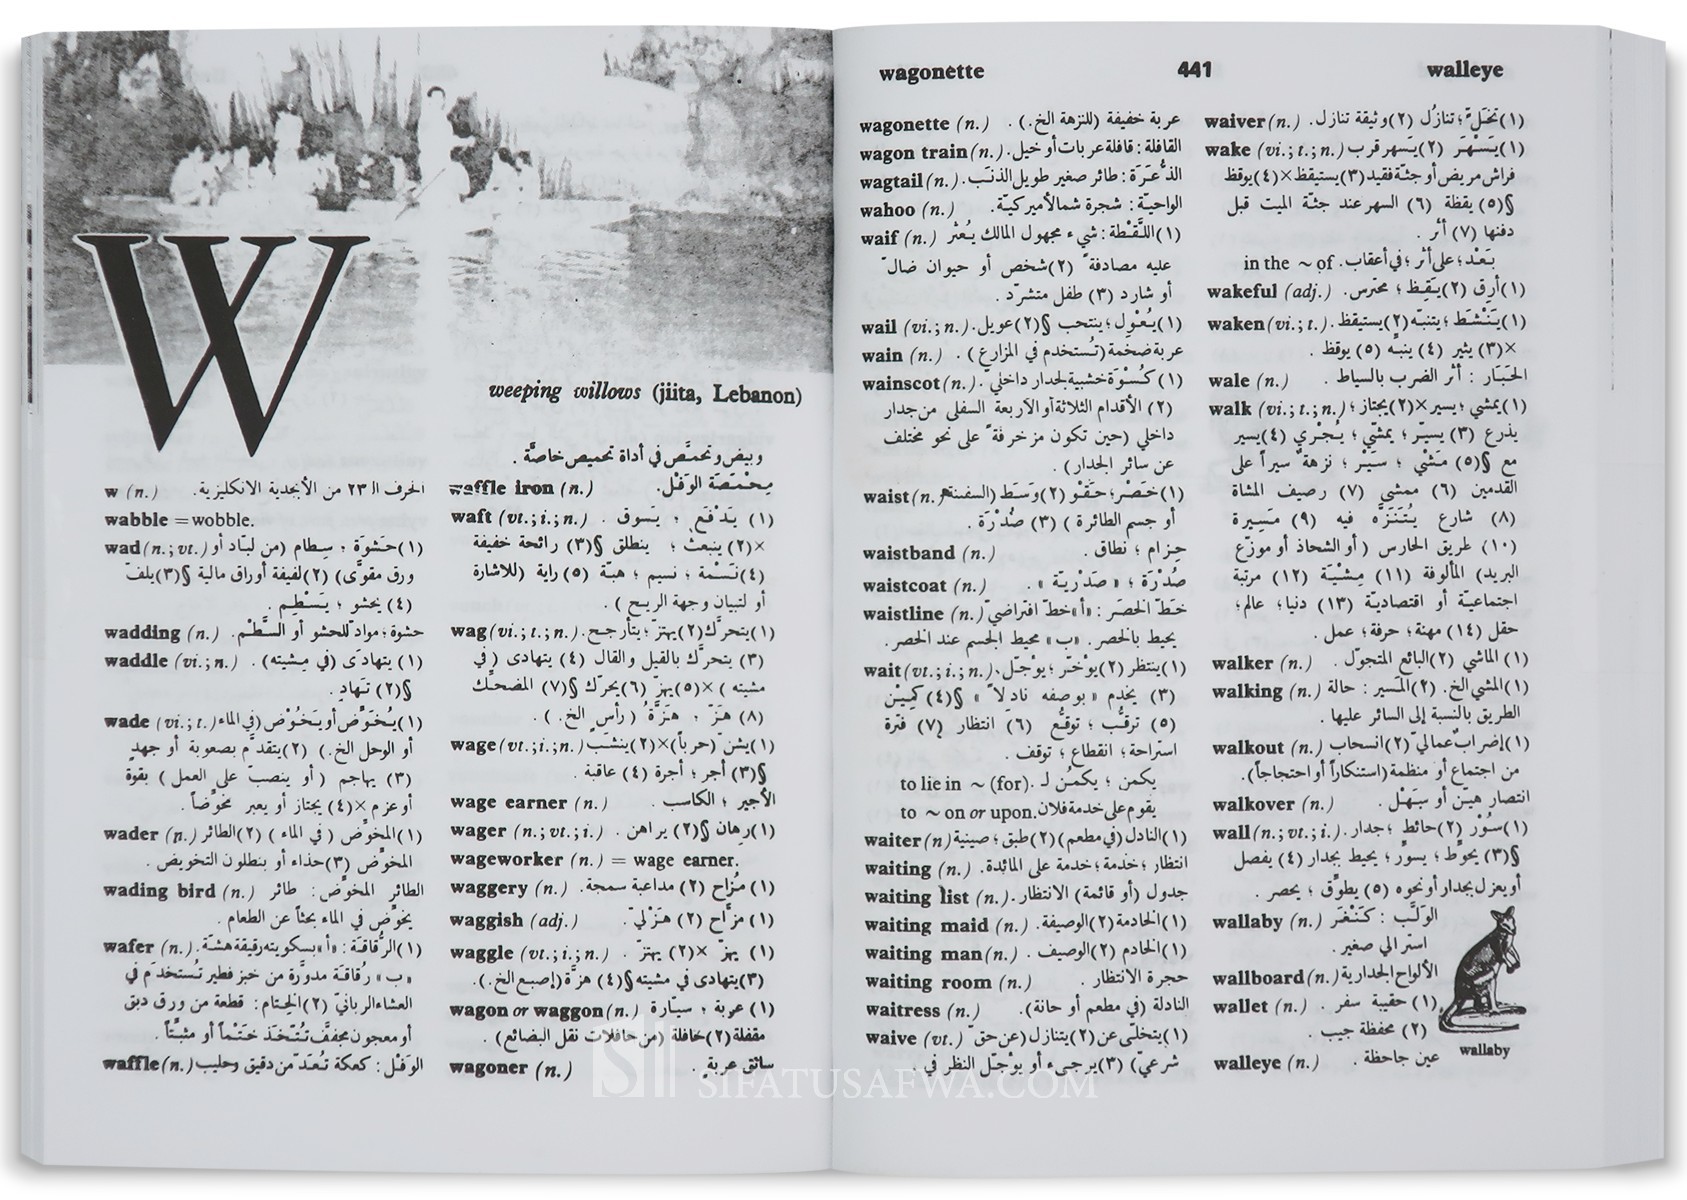 W
weeping willows (jiita, Lebanon)
w (n.) الحرف الـ ٢٣ من الأبجدية الانكليزية.
wabble = wobble.
wad (n.; vt.) (١) حَشوَة ؛ سِطام (من لبّاد أو
ورق مقوّى) (٢) لفيفة أوراق مالية §(٣) يلفّ
(٤) يحشو ؛ يَسْطِم .
wadding (n.) حشوة ؛ موادّ للحشو أو السَّطْم.
waddle (vi.; n.) (١) يتهادَى (في مِشيته) .
§(٢) تَهادٍ .
wade (vi.; t.) (١) يُخَوِّض أو يَخُوْض (في الماء
أو الوحل الخ.) (٢) يتقدّم بصعوبة أو جهدٍ
(٣) يهاجم ( أو ينصبّ على العمل ) بقوّة
أو عزم ×(٤) يجتاز أو يعبر مخوِّضاً .
wader (n.) (١) المخوِّض ( في الماء ) (٢) الطائر
المخوِّض (٣) حذاء أو بنطلون التخويض .
wading bird (n.) الطائر المخوِّض : طائر
يخوِّض في الماء بحثاً عن الطعام .
wafer (n.) (١) الرُّقاقة : «أ» بسكويته رقيقة هشّة .
«ب» رُقاقة مدوّرة من خبز فطير تُستخدَم في
العشاء الربانيّ (٢) الختام : قطعة من ورق دبق
أو معجون مجفّف تُتّخذ خَتْماً أو مثبِّتاً .
waffle (n.) الوَفْل : كعكة تُعدّ من دقيق وحليب
وبيض وتحمَّص في أداة تحميص خاصَّة .
waffle iron (n.) مِحْمَصَة الوَفْل.
waft (vt.; i.; n.) (١) يَدْفَع ؛ يَسوق .
×(٢) ينبعث ؛ ينطلق §(٣) رائحة خفيفة
(٤) نَسْمة ؛ نسيم ؛ هبّة (٥) راية (للاشارة
أو لتبيان وجهة الريح ) .
wag (vi.; t.; n.) (١) يتحرّك (٢) يهتزّ ؛ يتأرجح.
(٣) يتحرّك بالقيل والقال (٤) يتهادى ( في
مشيته ) ×(٥) يهزّ (٦) يحرّك §(٧) المضحك
(٨) هَزّ ، هَزَّةُ ( رأسٍ الخ. ) .
wage (vt.; i.; n.) (١) يشنّ (حرباً) ×(٢) ينشب
§(٣) أجر ؛ أجرة (٤) عاقبة .
wage earner (n.) الأجير ؛ الكاسب .
wager (n.; vt.; i.) (١) رِهان §(٢) يراهن .
wageworker (n.) = wage earner.
waggery (n.) (١) مُزاح (٢) مداعبة سمجة .
waggish (adj.) (١) مزّاح (٢) هَزْليّ .
waggle (vt.; i.; n.) (١) يهزّ ×(٢) يهتزّ .
(٣) يتهادى في مشيته §(٤) هزَّة (إصبع الخ.) .
wagon or waggon (n.) (١) عربة ؛ سيّارة
مقفلة (٢) حافلة (من حافلات نقل البضائع) .
wagoner (n.) سائق عربةٍ .
wagonette 441 walleye
wagonette (n.) عربة خفيفة (للنزهة الخ.) .
wagon train (n.) القافلة : قافلة عربات أو خيل.
wagtail (n.) الذُّعَرَة : طائر صغير طويل الذنَب.
wahoo (n.) الواحيّة : شجرة شمالأميركيّة.
waif (n.) (١) اللَّقْطة : شيء مجهول المالك يُعثر
عليه مصادفةً (٢) شخص أو حيوان ضالّ
أو شارد (٣) طفل متشرّد .
wail (vi.; n.) (١) يُعْوِل ؛ ينتحب §(٢) عويل.
wain (n.) عربة ضخمة (تُستخدم في المزارع) .
wainscot (n.) (١) كُسْوَة خشبية لجدار داخلي .
(٢) الأقدام الثلاثة أو الأربعة السفلى من جدار
داخلي (حين تكون مزخرفةً على نحو مختلف
عن سائر الجدار) .
waist (n.) (١) خَصْر ؛ حَقْو (٢) وَسَط (السفينة
أو جسم الطائرة ) (٣) صُدْرَة .
waistband (n.) حِزام ؛ نطاق .
waistcoat (n.) صُدْرَة ؛ « صَدْريّة » .
waistline (n.) خَطّ الخصر : «أ» خطّ افتراضيّ
يحيط بالخصر . «ب» محيط الجسم عند الخصر.
wait (vt.; i.; n.) (١) ينتظر (٢) يؤخّر ؛ يؤجّل.
(٣) يخدم «بوصفه نادلاً» §(٤) كمِيْن
(٥) ترقُّب ؛ توقُّع (٦) انتظار (٧) فترة
استراحة ؛ انقطاع ؛ توقف .
to lie in ~ (for). يكمن ؛ يكمُن لـ
to ~ on or upon. يقوم على خدمة فلان
waiter (n) (١) النادل (في مطعم) (٢) طبق ؛ صينية
waiting (n.) انتظار ؛ خدمة ؛ خدمة على المائدة.
waiting list (n.) جدول (أو قائمة) الانتظار.
waiting maid (n.) (١) الخادمة (٢) الوصيفة .
waiting man (n.) (١) الخادم (٢) الوصيف .
waiting room (n.) حجرة الانتظار .
waitress (n.) النادلة (في مطعم أو حانة).
waive (vt.) (١) يتخلّى عن (٢) يتنازل (عن حقّ
شرعيّ) (٣) يرجىء أو يؤجّل النظر في .
waiver (n.) (١) تخَلٍّ ؛ تنازُل (٢) وثيقة تنازل .
wake (vi.; t.; n.) (١) يَسْهَر (٢) يسهر قرب
فراش مريض أو جثّة فقيد (٣) يستيقظ ×(٤) يوقظ
§(٥) يقظة (٦) السهر عند جثّة الميت قبل
دفنها (٧) أثر .
in the ~ of. بَعْد ؛ على أثر ؛ في أعقاب
wakeful (adj.) (١) أرِق (٢) يَقِظ ؛ محترس .
waken (vi.; t.) (١) يَنْشَط ؛ يتنبّه (٢) يستيقظ.
×(٣) يثير (٤) ينبّه (٥) يوقظ .
wale (n.) الحَبَار : أثر الضرب بالسياط .
walk (vi.; t.; n.) (١) يمشي ؛ يسير ×(٢) يجتاز ؛
يذرع (٣) يسيّر ؛ يمشّي ؛ يُجْري (٤) يسير
مع §(٥) مَشْي ؛ سَيْر ؛ نزهة ٌ سيراً على
القدمين (٦) ممشى (٧) رصيف المشاة
(٨) شارع يُتَنَزَّه فيه (٩) مَسِيرة
(١٠) طريق الحارس ( أو الشحاذ أو موزّع
البريد) المألوفة (١١) مِشْيَة (١٢) مرتبة
اجتماعيّة أو اقتصاديّة (١٣) دنيا ؛ عالم ؛
حقل (١٤) مهنة ؛ حرفة ؛ عمل .
walker (n.) (١) الماشي (٢) البائع المتجوّل .
walking (n.) (١) المشي الخ. (٢) المَسير : حالة
الطريق بالنسبة إلى السائر عليها .
walkout (n.) (١) إضرابٌ عمّاليّ (٢) انسحاب
من اجتماع أو منظمة (استنكاراً أو احتجاجاً).
walkover (n.) انتصار هيّن أو سَهْل .
wall (n.; vt.; i.) (١) سُوْر (٢) حائط ؛ جدار .
§(٣) يحوّط ؛ يسوّر ؛ يحيط بجدار (٤) يفصل
أو يعزل بجدار أو نحوه (٥) يطوّق ؛ يحصر .
wallaby (n.) الوَلَب : كَنْغَر
استرالي صغير .
wallboard (n.) الألواح الجدارية
wallet (n.) (١) حقيبة سفر .
(٢) محفظة جيب .
walleye (n.) عين جاحظة .
wallaby
SIFATUSAFWA.COM